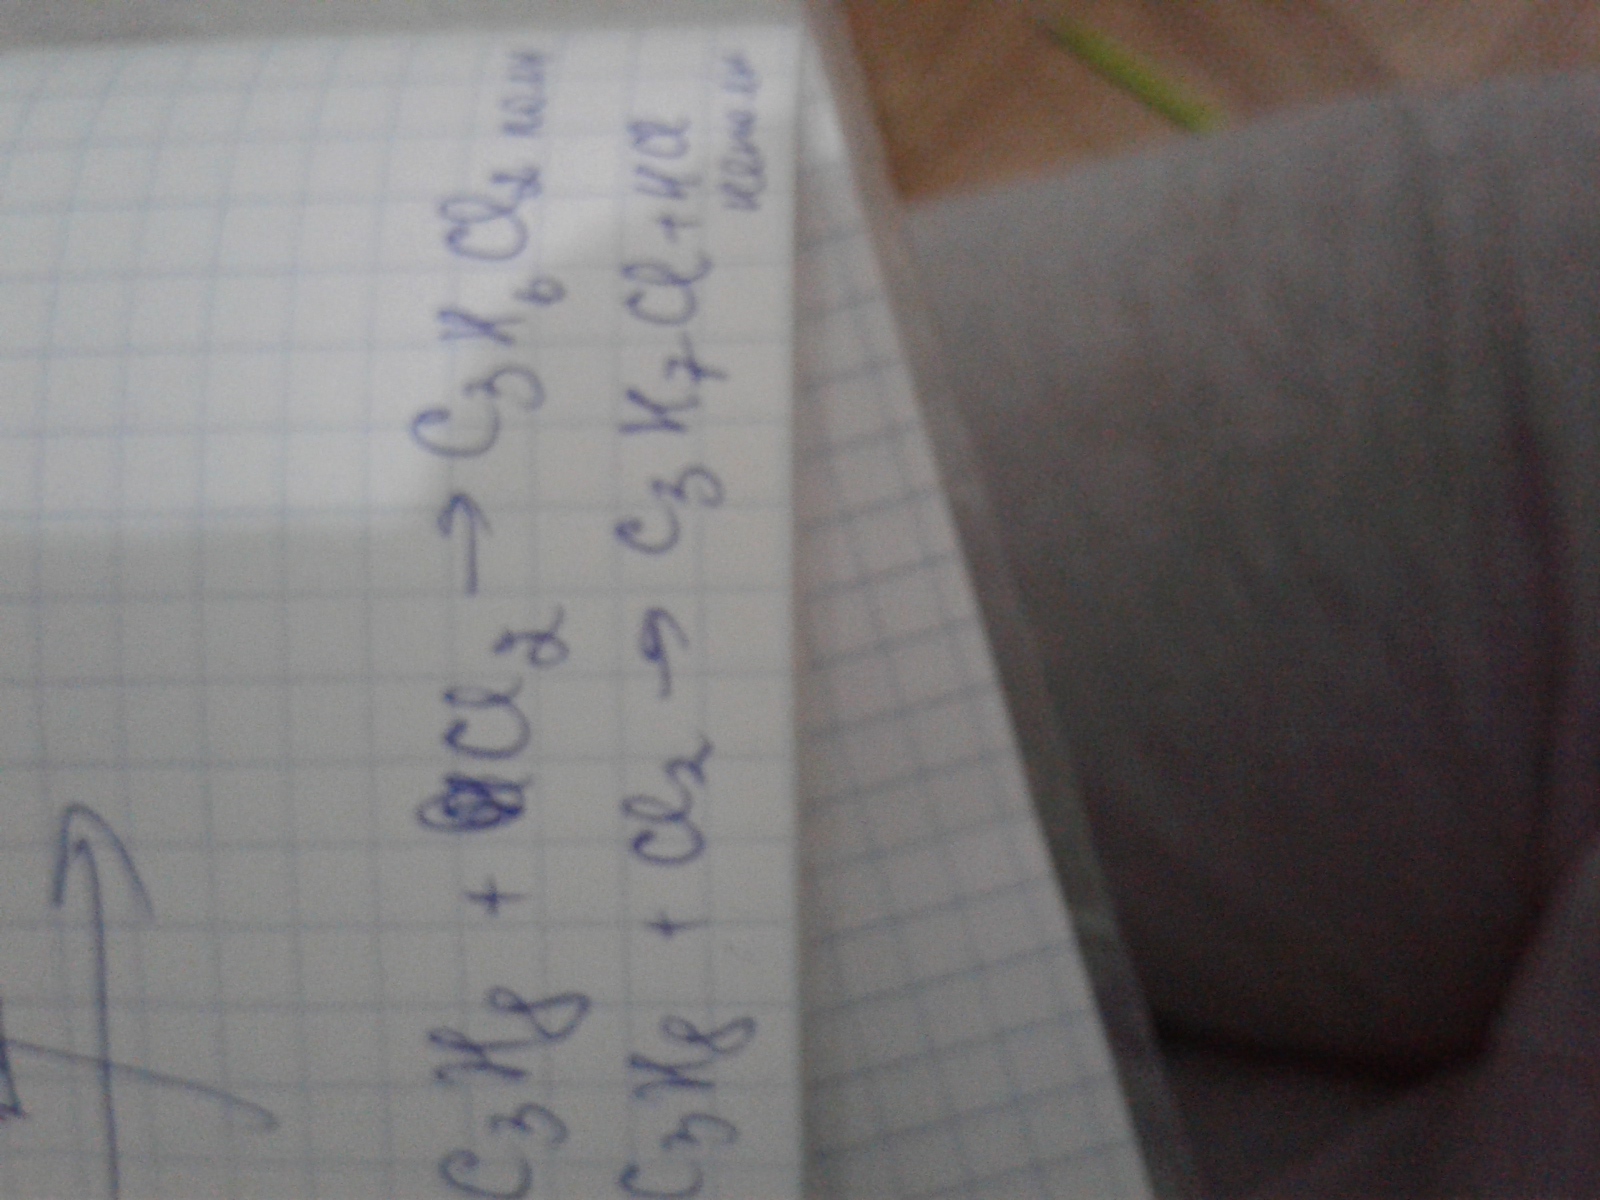 C₃H₈ + Cl₂ → C₃H₆Cl₂
C₃H₈ + Cl₂ → C₃H₇Cl + HCl